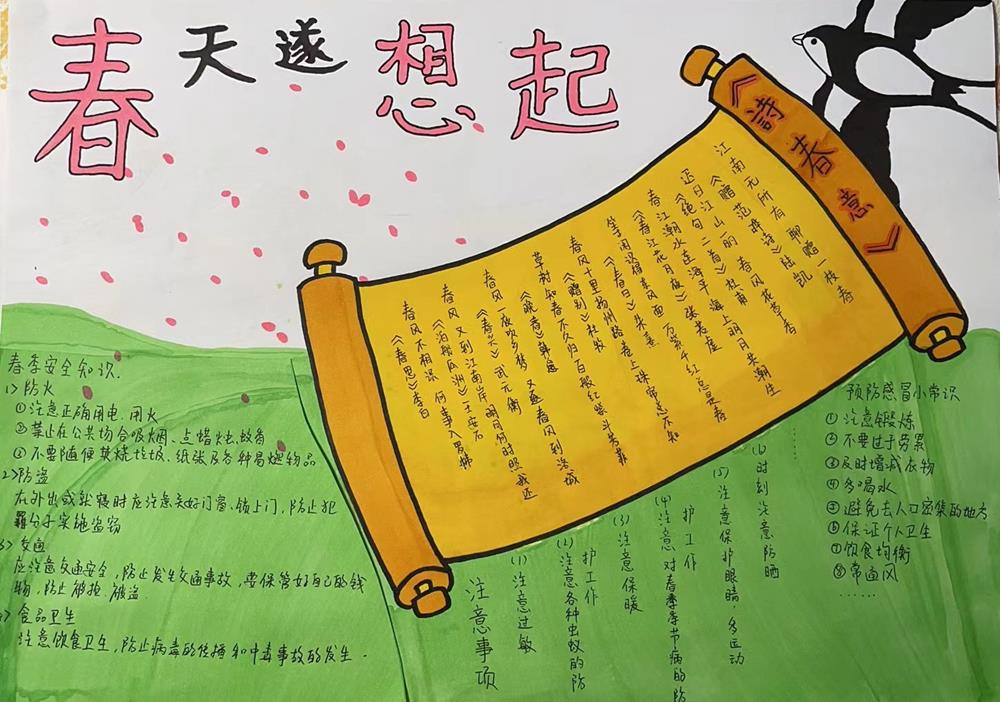 春天遂想起
《詩春意》
江南无所有 聊赠一枝春
《赠范晔诗》陆凯
迟日江山丽 春风花草香
《绝句二首》杜甫
春江潮水连海平 海上明月共潮生
《春江花月夜》张若虚
等闲识得东风面 万紫千红总是春
《春日》朱熹
春风十里扬州路 卷上珠帘总不如
《赠别》杜牧
草树知春不久归 百般红紫斗芳菲
《晚春》韩愈
春风一夜吹乡梦 又逐春风到洛城
《春兴》武元衡
春风又到江南岸 明月何时照我还
《泊船瓜洲》王安石
春风不相识 何事入罗帏
《春思》李白
春季安全知识.
1)防火
①注意正确用电、用火
②禁止在公共场合吸烟、点蜡烛、蚊香
③不要随便焚烧垃圾、纸张及各种易燃物品
2)防盗
在外出或就寝时应注意关好门窗、锁上门,防止犯
罪分子实施盗窃
3)交通
应注意交通安全,防止发生交通事故,要保管好自己的钱
物,防止被抢、被盗.
4)食品卫生
注意饮食卫生,防止病毒的传播和中毒事故的发生.
注意事项
(1)注意过敏
(2)注意各种虫蚁的防
护工作
(3)注意保暖
(4)注意对春季季节病的防
护工作
(5)注意保护眼睛,多运动
(6)时刻注意防晒
……
预防感冒小常识
①注意锻炼
②不要过于劳累
③及时增减衣物
④多喝水
⑤避免去人口密集的地方
⑥保证个人卫生
⑦饮食均衡
⑧常通风
……